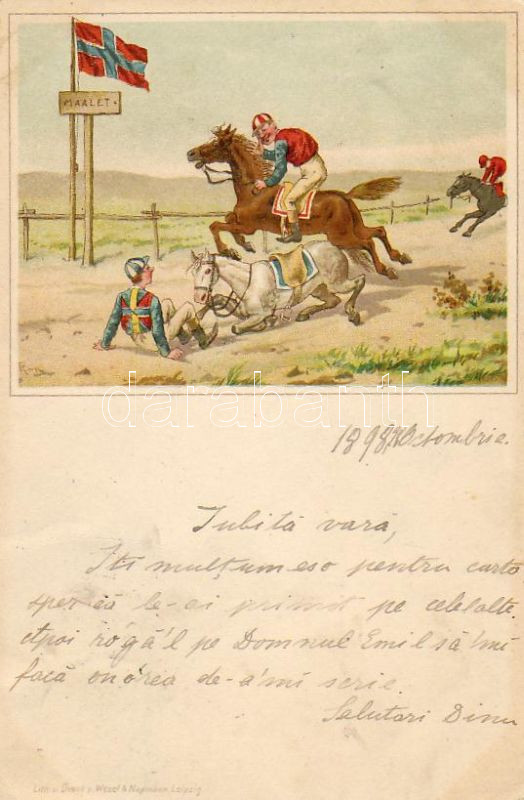 MAALET
darabanth
1898 Octombrie.
Iubită vară,
Iti mulţumesc pentru carte
sper că le-ai primit pe celelalte.
Apoi rógă'l pe Domnul Emil să'mi
facă onórea de-a'mi scrie.
Salutari Dinu
Lith. u. Druck v. Wezel & Naumann Leipzig